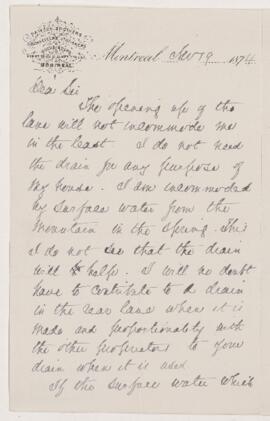 MONTREAL
Montreal 19 1874
Dear Sir
The opening up of the
lane will not incommode me
in the least. I do not need
the drain for any purpose of
my house. I am incommoded
by surface water from the
mountain in the spring. This
I do not see that the drain
will help. I will no doubt
have to contribute to a drain
in the rear lane when it is
made and proportionably with
the other proprietors to your
drain when it is used
If the surface water which